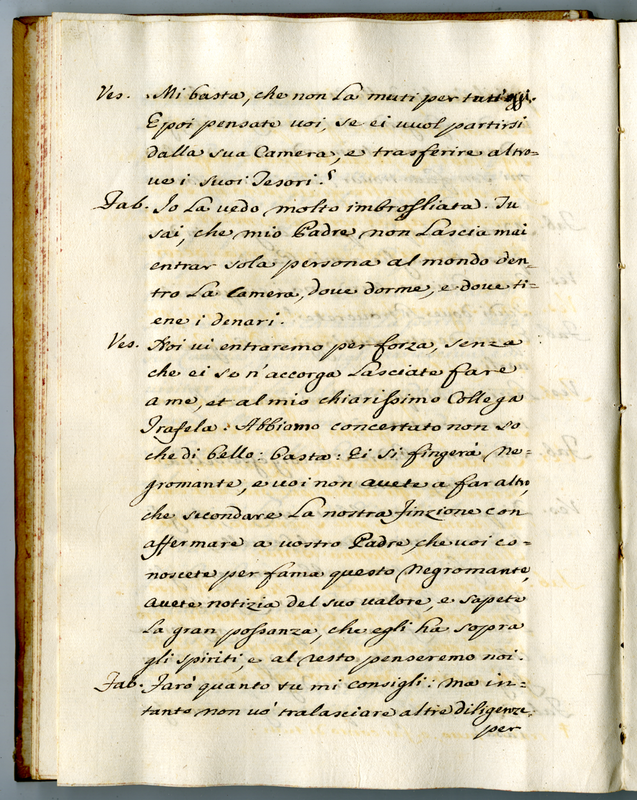 Ves. Mi basta, che non la muti per tutt'oggi.
E poi pensate voi, se ei vuol partirsi
dalla sua Camera, e trasferire altro=
ve i suoi Tesori.
Fab. Io la vedo molto imbrogliata. Tu
sai, che mio Padre non lascia mai
entrar sola persona al mondo den=
tro la Camera, dove dorme, e dove ti=
ene i denari.
Ves. Noi vi entraremo per forza, senza
che ei se n'accorga lasciate fare
a me, et al mio chiarissimo Collega
Trafela: Abbiamo concertato non so
che di bello: basta: Ei si fingerà Ne=
gromante, e voi non avete a far altro,
che secondare la nostra finzione con
affermare a vostro Padre, che voi co=
noscete per fama questo Negromante,
avete notizia del suo valore, e sapete
la gran possanza, che egli ha sopra
gli spiriti, e al resto penseremo noi.
Fab. Farò quanto tu mi consigli: ma in=
tanto non vò tralasciare altre diligenze.
per